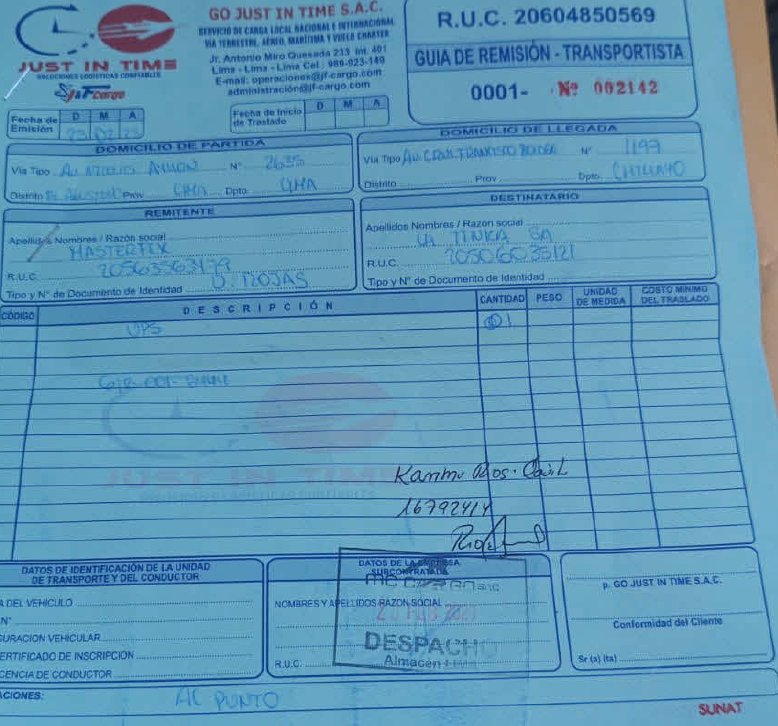 GO JUST IN TIME S.A.C.
SERVICIO DE CARGA LOCAL NACIONAL E INTERNACIONAL
VIA TERRESTRE, AEREO, MARÍTIMA Y VUELO CHARTER
Jr. Antonio Miro Quesada 233 Int. 401
Lima - Lima - Lima Cel.: 989-923-149
E-mail: operaciones@jf-cargo.com
administración@jf-cargo.com
JUST IN TIME
SOLUCIONES LOGISTICAS CONFIABLES
J&F Cargo
R.U.C. 20604850569
GUIA DE REMISIÓN - TRANSPORTISTA
0001- Nº 002142
Fecha de Emisión D M A
23 02
Fecha de Inicio de Traslado D M A
DOMICILIO DE PARTIDA
Vía Tipo Av. Nº 2635
Distrito El Agustino Prov LIMA Dpto. LIMA
DOMICILIO DE LLEGADA
Vía Tipo Av. Nº 1197
Distrito Prov Dpto. CHICLAYO
REMITENTE
Apellidos Nombres / Razón social
MASTERTEK
R.U.C. 20563563179
Tipo y Nº de Documento de Identidad D. ROJAS
DESTINATARIO
Apellidos Nombres / Razon social
LA TINKA SA
R.U.C. 20506035121
Tipo y Nº de Documento de Identidad
CÓDIGO DESCRIPCIÓN CANTIDAD PESO UNIDAD DE MEDIDA COSTO MINIMO DEL TRASLADO
UPS 01
G/R 001-
JUST IN TIME
16792414
DATOS DE IDENTIFICACIÓN DE LA UNIDAD
DE TRANSPORTE Y DEL CONDUCTOR
A DEL VEHÍCULO
Nº
GURACION VEHICULAR
ERTIFICADO DE INSCRIPCIÓN
CENCIA DE CONDUCTOR
DATOS DE LA EMPRESA
SUBCONTRATADA
NOMBRES Y APELLIDOS RAZON SOCIAL
R.U.C.
DESPACHO
Almacén Lima
p. GO JUST IN TIME S.A.C.
Conformidad del Cliente
Sr (a) (ta)
ACIONES: AL PUNTO
SUNAT